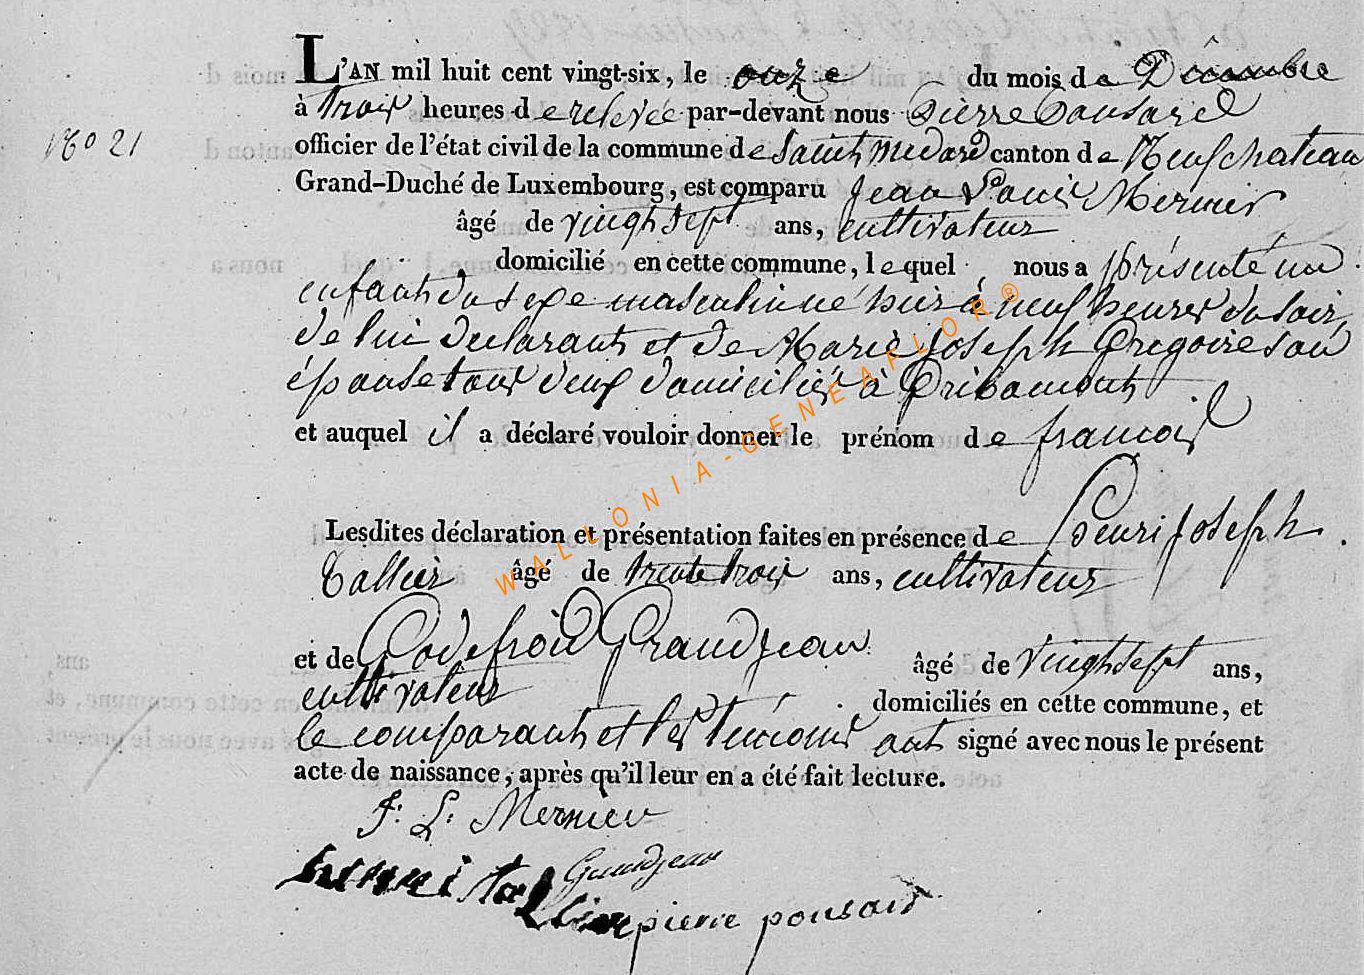 L'AN mil huit cent vingt-six, le onze du mois de Décembre
à trois heures de relevée par-devant nous Pierre Ponsard
No 21
officier de l'état civil de la commune de Saint Medard canton de Neufchateau
Grand-Duché de Luxembourg, est comparu Jean Louis Mernier
âgé de vingt sept ans, cultivateur
domicilié en cette commune, lequel nous a présenté un
enfant du sexe masculin né hier à neuf heures du soir,
de lui declarant et de Marie Joseph Gregoire son
épouse tous deux domiciliés à Gribomont
et auquel il a déclaré vouloir donner le prénom de francois
Lesdites déclaration et présentation faites en présence de Henri Joseph
Tallier âgé de trente trois ans, cultivateur
et de Godefroid Grandjean âgé de vingt sept ans,
cultivateur domiciliés en cette commune, et
le comparant et les témoins ont signé avec nous le présent
acte de naissance, après qu'il leur en a été fait lecture.
J: L: Mernier
Grandjean
henri tallier pierre ponsard
WALLONIA-GENEAFLOR®